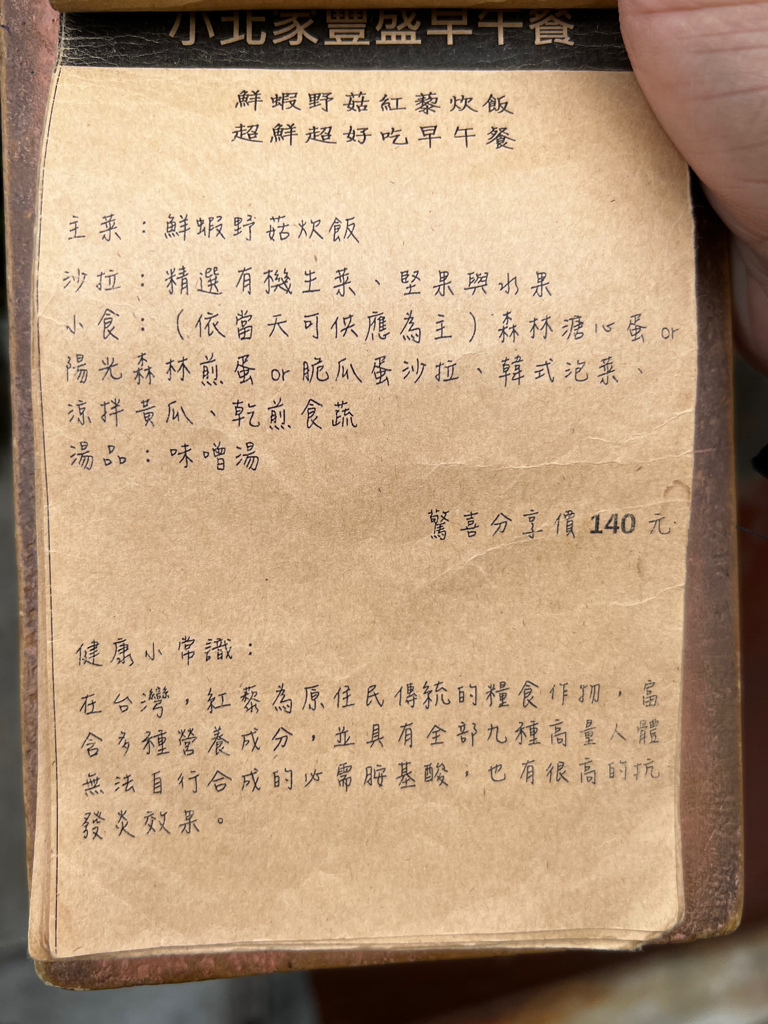 小北家豐盛早午餐
鮮蝦野菇紅藜炊飯
超鮮超好吃早午餐
主菜：鮮蝦野菇炊飯
沙拉：精選有機生菜、堅果與水果
小食：（依當天可供應為主）森林溏心蛋 or
陽光森林煎蛋 or 脆瓜蛋沙拉、韓式泡菜、
涼拌黃瓜、乾煎食蔬
湯品：味噌湯
驚喜分享價 140 元
健康小常識：
在台灣，紅藜為原住民傳統的糧食作物，富
含多種營養成分，並具有全部九種高量人體
無法自行合成的必需胺基酸，也有很高的抗
發炎效果。